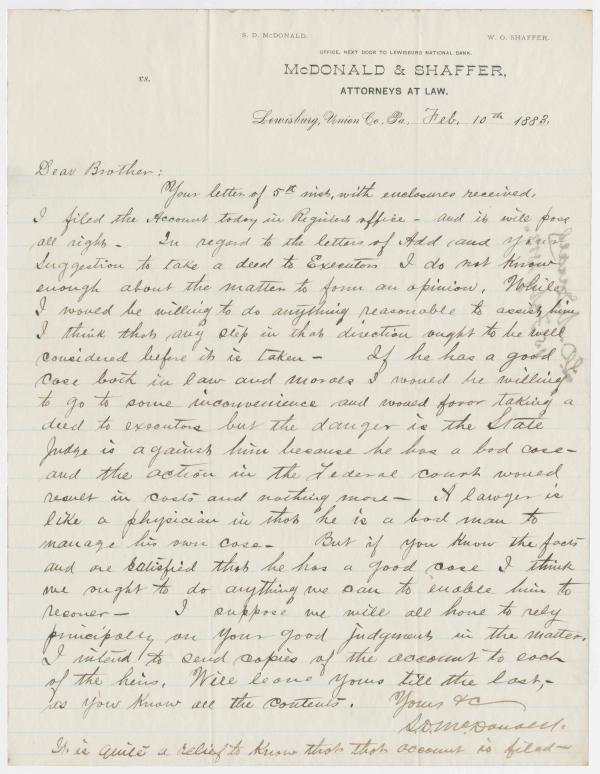 S. D. McDONALD. W. O. SHAFFER.
OFFICE, NEXT DOOR TO LEWISBURG NATIONAL BANK.
McDONALD & SHAFFER,
vs.
ATTORNEYS AT LAW.
Lewisburg, Union Co., Pa., Feb. 10th 1883.
Dear Brother:
Your letter of 5th inst, with enclosures received.
I filed the Account today in Registers office - and it will pass
all right - In regard to the letters of Add. and your
suggestion to take a deed to Executors I do not know
enough about the matter to form an opinion. While
I would be willing to do anything reasonable to assist him
I think that any step in that direction ought to be well
considered before it is taken - If he has a good
case both in law and morals I would be willing
to go to some inconvenience and would favor taking a
deed to executors but the danger is the State
Judge is against him because he has a bad case -
and the action in the Federal court would
result in costs and nothing more - A lawyer is
like a physician in that he is a bad man to
manage his own case - But if you know the facts
and are satisfied that he has a good case I think
we ought to do anything we can to enable him to
recover - I suppose we will all have to rely
principally on your good judgment in the matter.
I intend to send copies of the account to each
of the heirs. Will leave yours till the last, -
as you know all the contents. Yours &c
S. D. McDonald.
It is quite a relief to know that that account is filed -